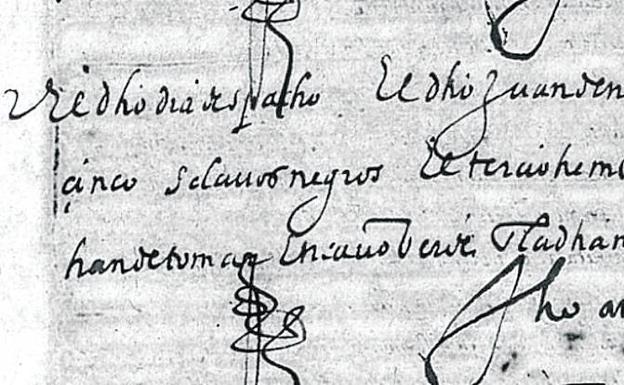 El dho dia despacho El dho Juan den
çinco sclauos negros El tercio hem
han de tomar En cauo Verde
ho